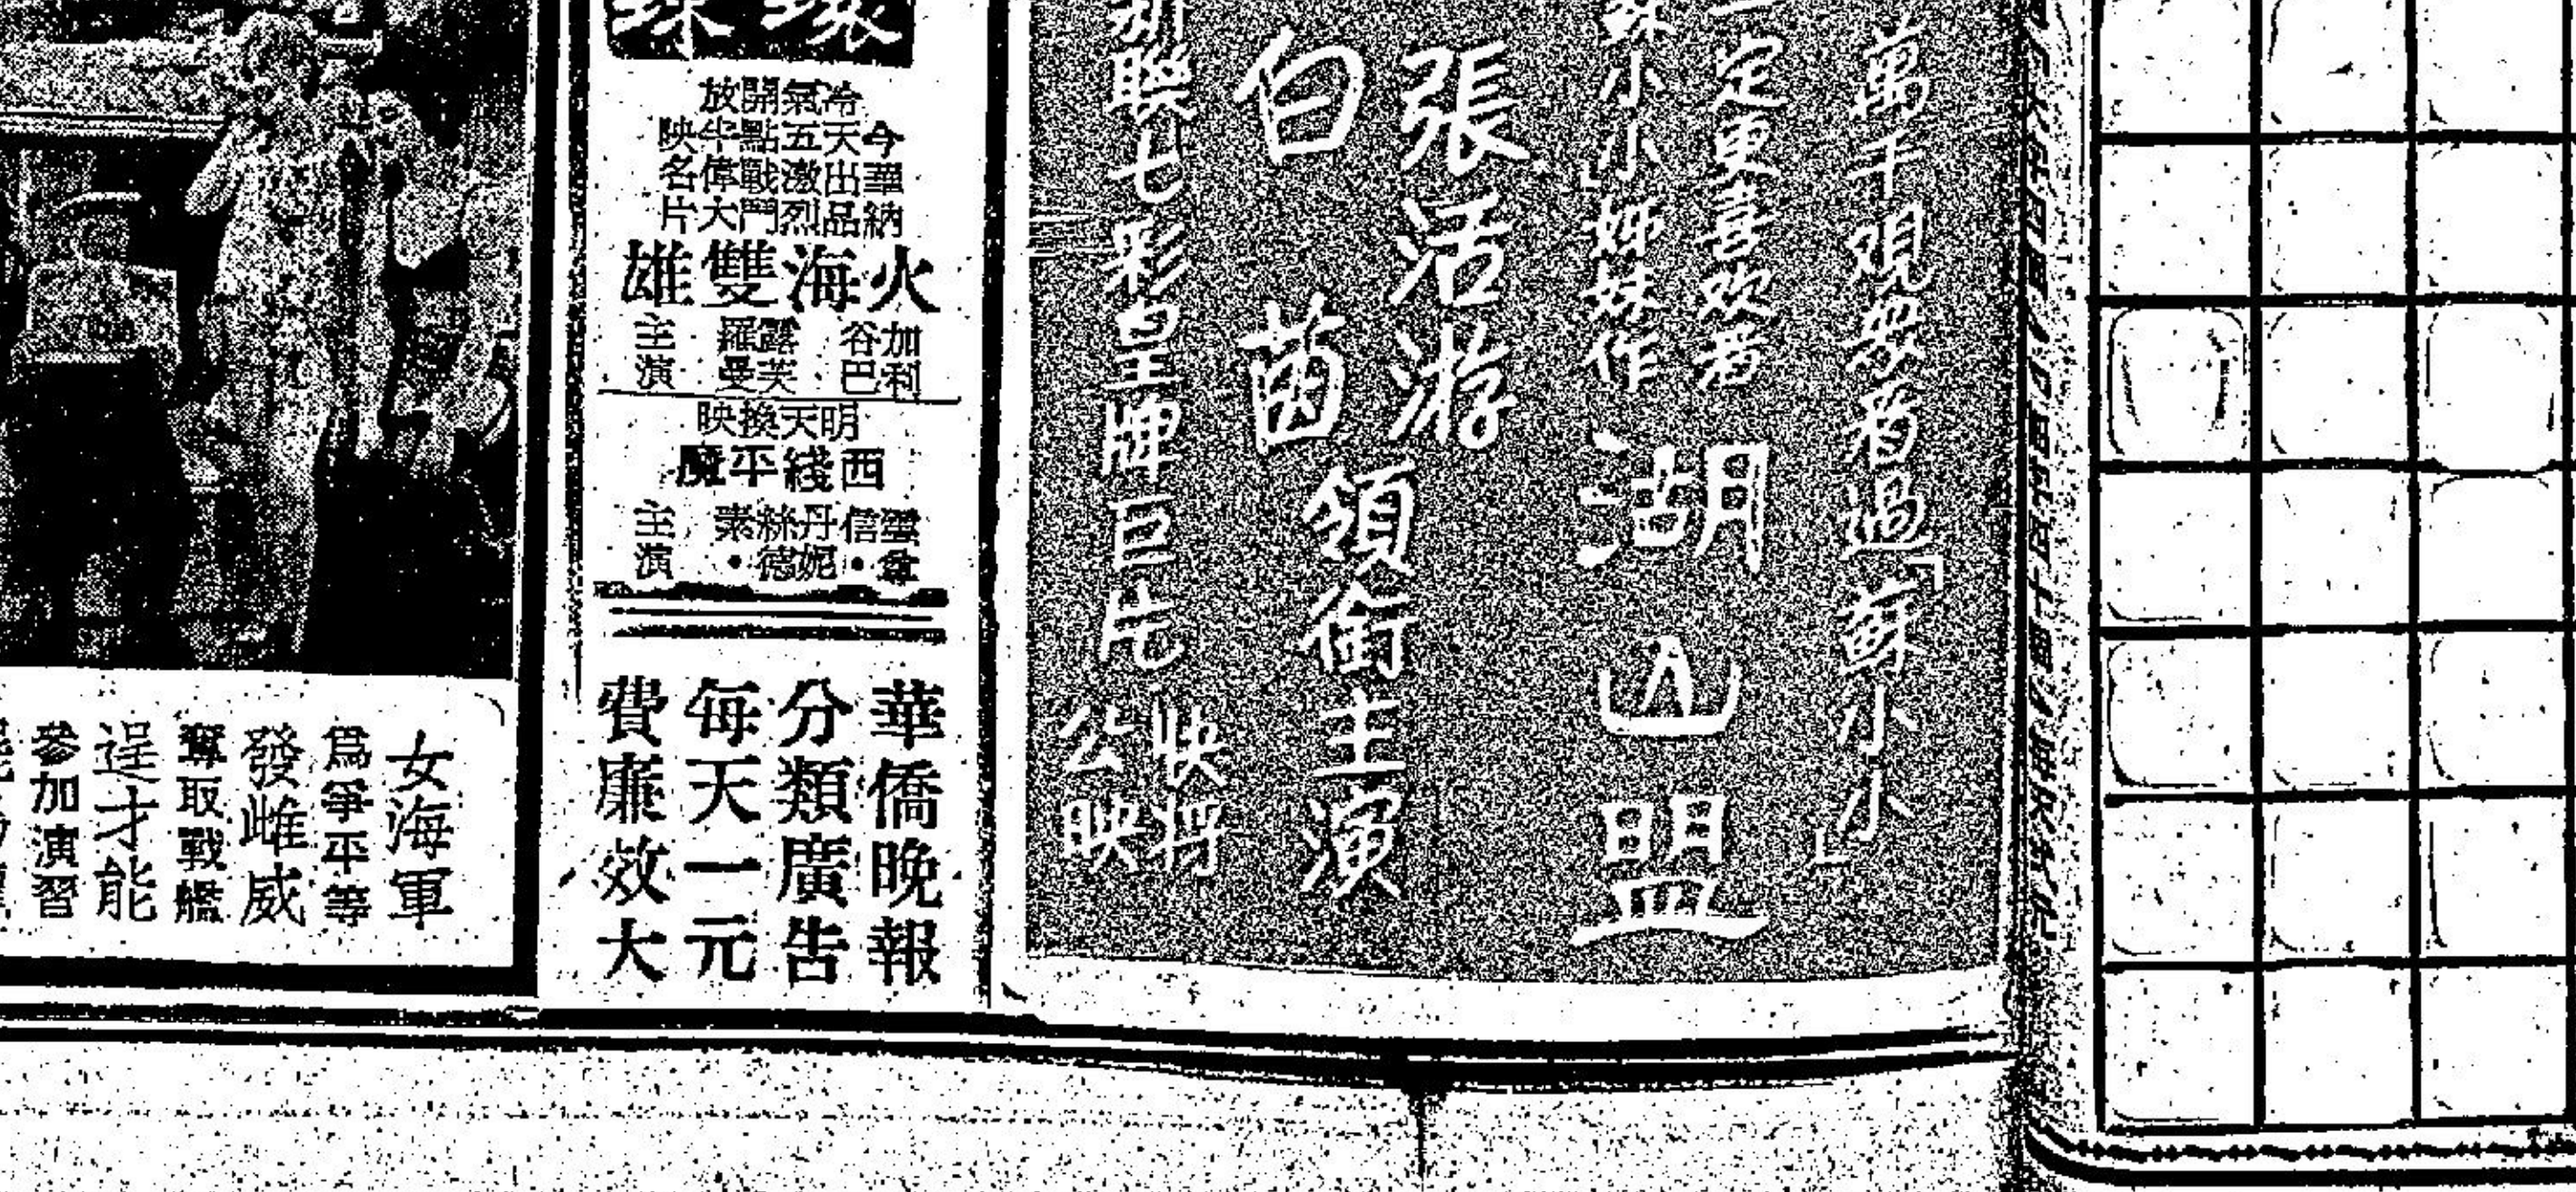 萬千觀衆看過「蘇小小」
一定更喜欢看
蘇小小」姊妹作
湖山盟
張活游
白茵
領銜主演
新聯七彩皇牌巨片
快将
公映
環球
冷氣開放
今天五點半映
華納出品
激烈戰鬥
偉大名片
火海雙雄
加利谷巴
露芙羅曼
主演
明天換映
西綫平魔
主演
華僑晚報
分類廣告
每天一元
費廉效大
女海軍
爲爭平等
發雌威
奪取戰艦
逞才能
參加演習